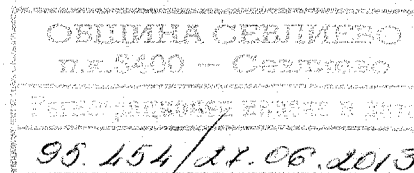 ОБЩИНА СЕВЛИЕВО
п.к.5400 — Севлиево
Регистрационен индекс и дата
95.154/27.06.2013